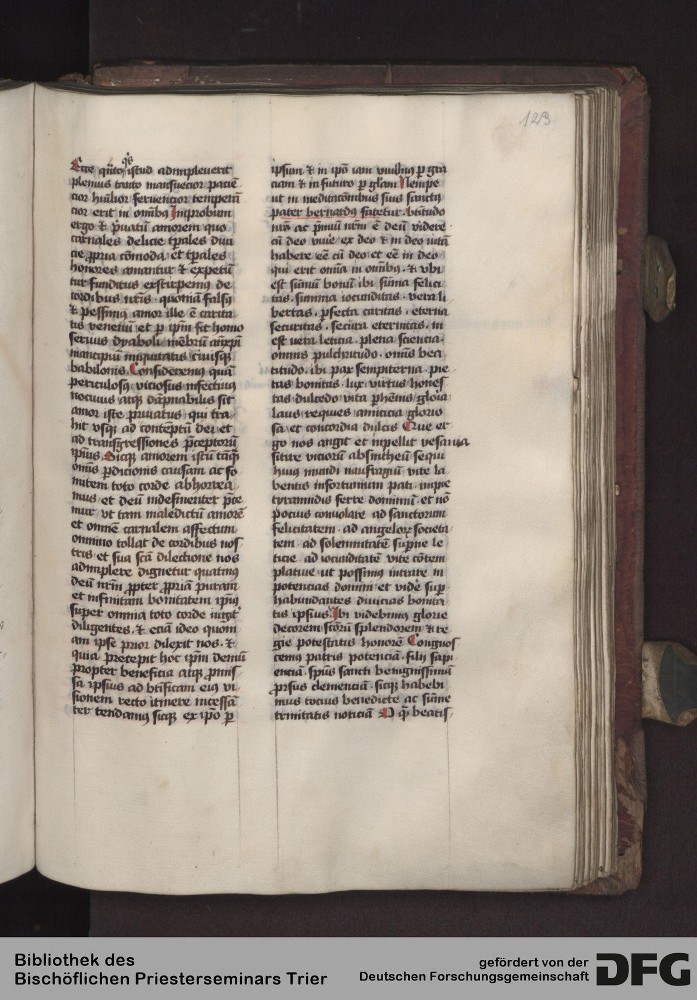 123
qͥs
Ecce qͣnto istud adimpleuerit
plenius tanto mansuecior pacie᷑
cior hu᷑ilior feruencior temperan᷑
cior erit in om᷑ibꝰ Improbum
ergo & p᷑uatu᷑ amorem quo
carnales delicie t᷑pales diui
cie ꝓpria co᷑moda et t᷑pales
honores amantur & expetu᷑
tur funditus exstirpemꝰ de
cordibus nr᷑is · quonia᷑ falsꝰ
& pessimꝰ amor ille e᷑ carita
tis venenu᷑ et ꝑ ip᷑m fit homo
seruus dyaboli me᷑bru᷑ an᷑xp᷑i
mancipiu᷑ iniquitatis ciuisqꝫ
babilonis Consideremꝰ qua᷑
periculosꝰ viciosus infectiuꝰ
nociuus atqꝫ da᷑pnabilis sit
amor iste p᷑uatus qui tra
hit vsqꝫ ad conte᷑ptu᷑ dei et
ad transg᷑ressiones p᷑ceptoru᷑
ip᷑ius Sicqꝫ amorem istu᷑ ta᷑qͣ
om᷑is ꝑdicionis causam ac fo
mitem toto corde abhorrea
mus et deu᷑ indesinenter p᷑ce
mur vt tam maledictu᷑ amore᷑
et omne᷑ carnalem affectum
omnino tollat de cordibus nos
tris et sua sc᷑a dilectione nos
adimplere dignetur quatinꝰ
deu᷑ nr᷑m ꝓpter ꝓpria᷑ puram
et infinitam bonitatem ip᷑iꝰ
super omnia toto corde iugit᷑
diligentes & ecia᷑ ideo quoni
am ip᷑e prior dilexit nos · &
quia precepit hoc ip᷑m demu᷑
propter beneficia atqꝫ ꝓmis
sa ipsius ad bt᷑ificam eiꝰ vi
sionem recto itinere incessa᷑
ter tendamꝰ sicqꝫ ex ip᷑o ꝑ
ipsum & in ip᷑o iam viuamꝰ ꝑ gr᷑a
ciam & in futuro ꝑ gl᷑iam Nempe
ut in meditac᷑onibus suis sanctꝰ
pater bernardꝰ fatetur bt᷑itudo
nr᷑a ac p᷑miu᷑ nr᷑m e᷑ deu᷑ videre ·
cu᷑ deo viue᷑ ex deo & in deo vita᷑
habere ee᷑ cu᷑ deo et ee᷑ in deo
qui erit om᷑ia in om᷑ibꝰ · & vbi
est su᷑mu᷑ bonu᷑ ibi su᷑ma felici
tas · summa iocunditas · vera li
bertas · ꝑfecta caritas · eterna
securitas · secura eternitas · ibi
est vera leticia · plena sciencia ·
omnis pulchritudo · om᷑is bea
titudo · ibi pax sempiterna · pie
tas bonitas · lux virtus hones
tas dulcedo vita ꝑhe᷑nis gl᷑oia
laus requies amicicia glorio
sa et concordia dulcis Que er
go nos angit et inpellit vesania
sitire vicioru᷑ absintheu᷑ sequi
huiꝰ mundi naufragiu᷑ vite la
bentis infortunium pati · impie
tyrannidis ferre dominiu᷑ et no᷑
pocius conuolare ad sanctorum
felicitatem · ad angeloꝝ societa
tem · ad solemnitate᷑ sup᷑ne le
ticie · ad iocunditate᷑ vite co᷑tem
platiue · ut possimꝰ intrare in
potencias domini et vide᷑ sup᷑
habundantes diuicias bonita
tis ipsius Ibi videbimꝰ glorie
decorem sc᷑oru᷑ splendorem & re
gie potestatis honore᷑ Congnos
cemꝰ patris potencia᷑ · filij sapi
encia᷑ · sp᷑us sancti benignissima᷑
ꝓrsus clemencia᷑ · sicqꝫ habebi
mus tocius benedicte ac su᷑me
trinitatis noticia᷑ O qͣ beatis
Bibliothek des
Bischöflichen Priesterseminars Trier
gefördert von der
Deutschen Forschungsgemeinschaft
DFG